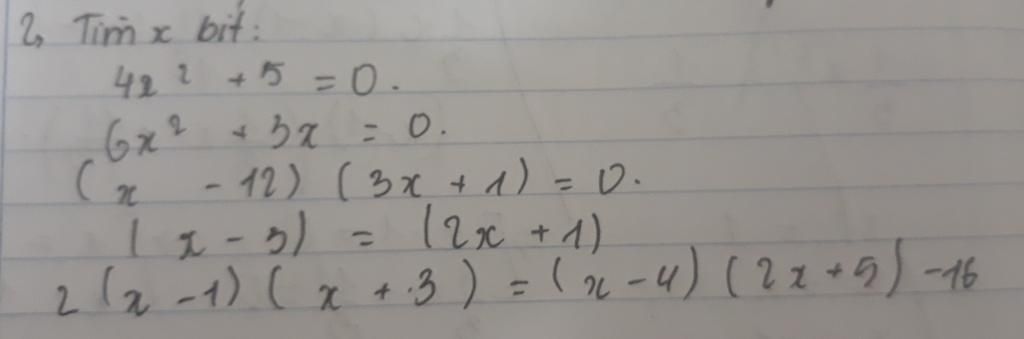 2, Tìm x bít:
4x² + 5 = 0.
6x² + 3x = 0.
(x - 12) (3x + 1) = 0.
(x - 5) = (2x + 1)
2 (x - 1) (x + 3) = (x - 4) (2x + 5) - 16